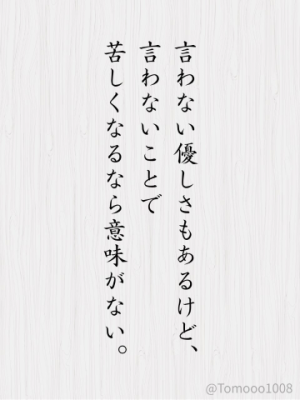 言わない優しさもあるけど、
言わないことで
苦しくなるなら意味がない。
@Tomooo1008